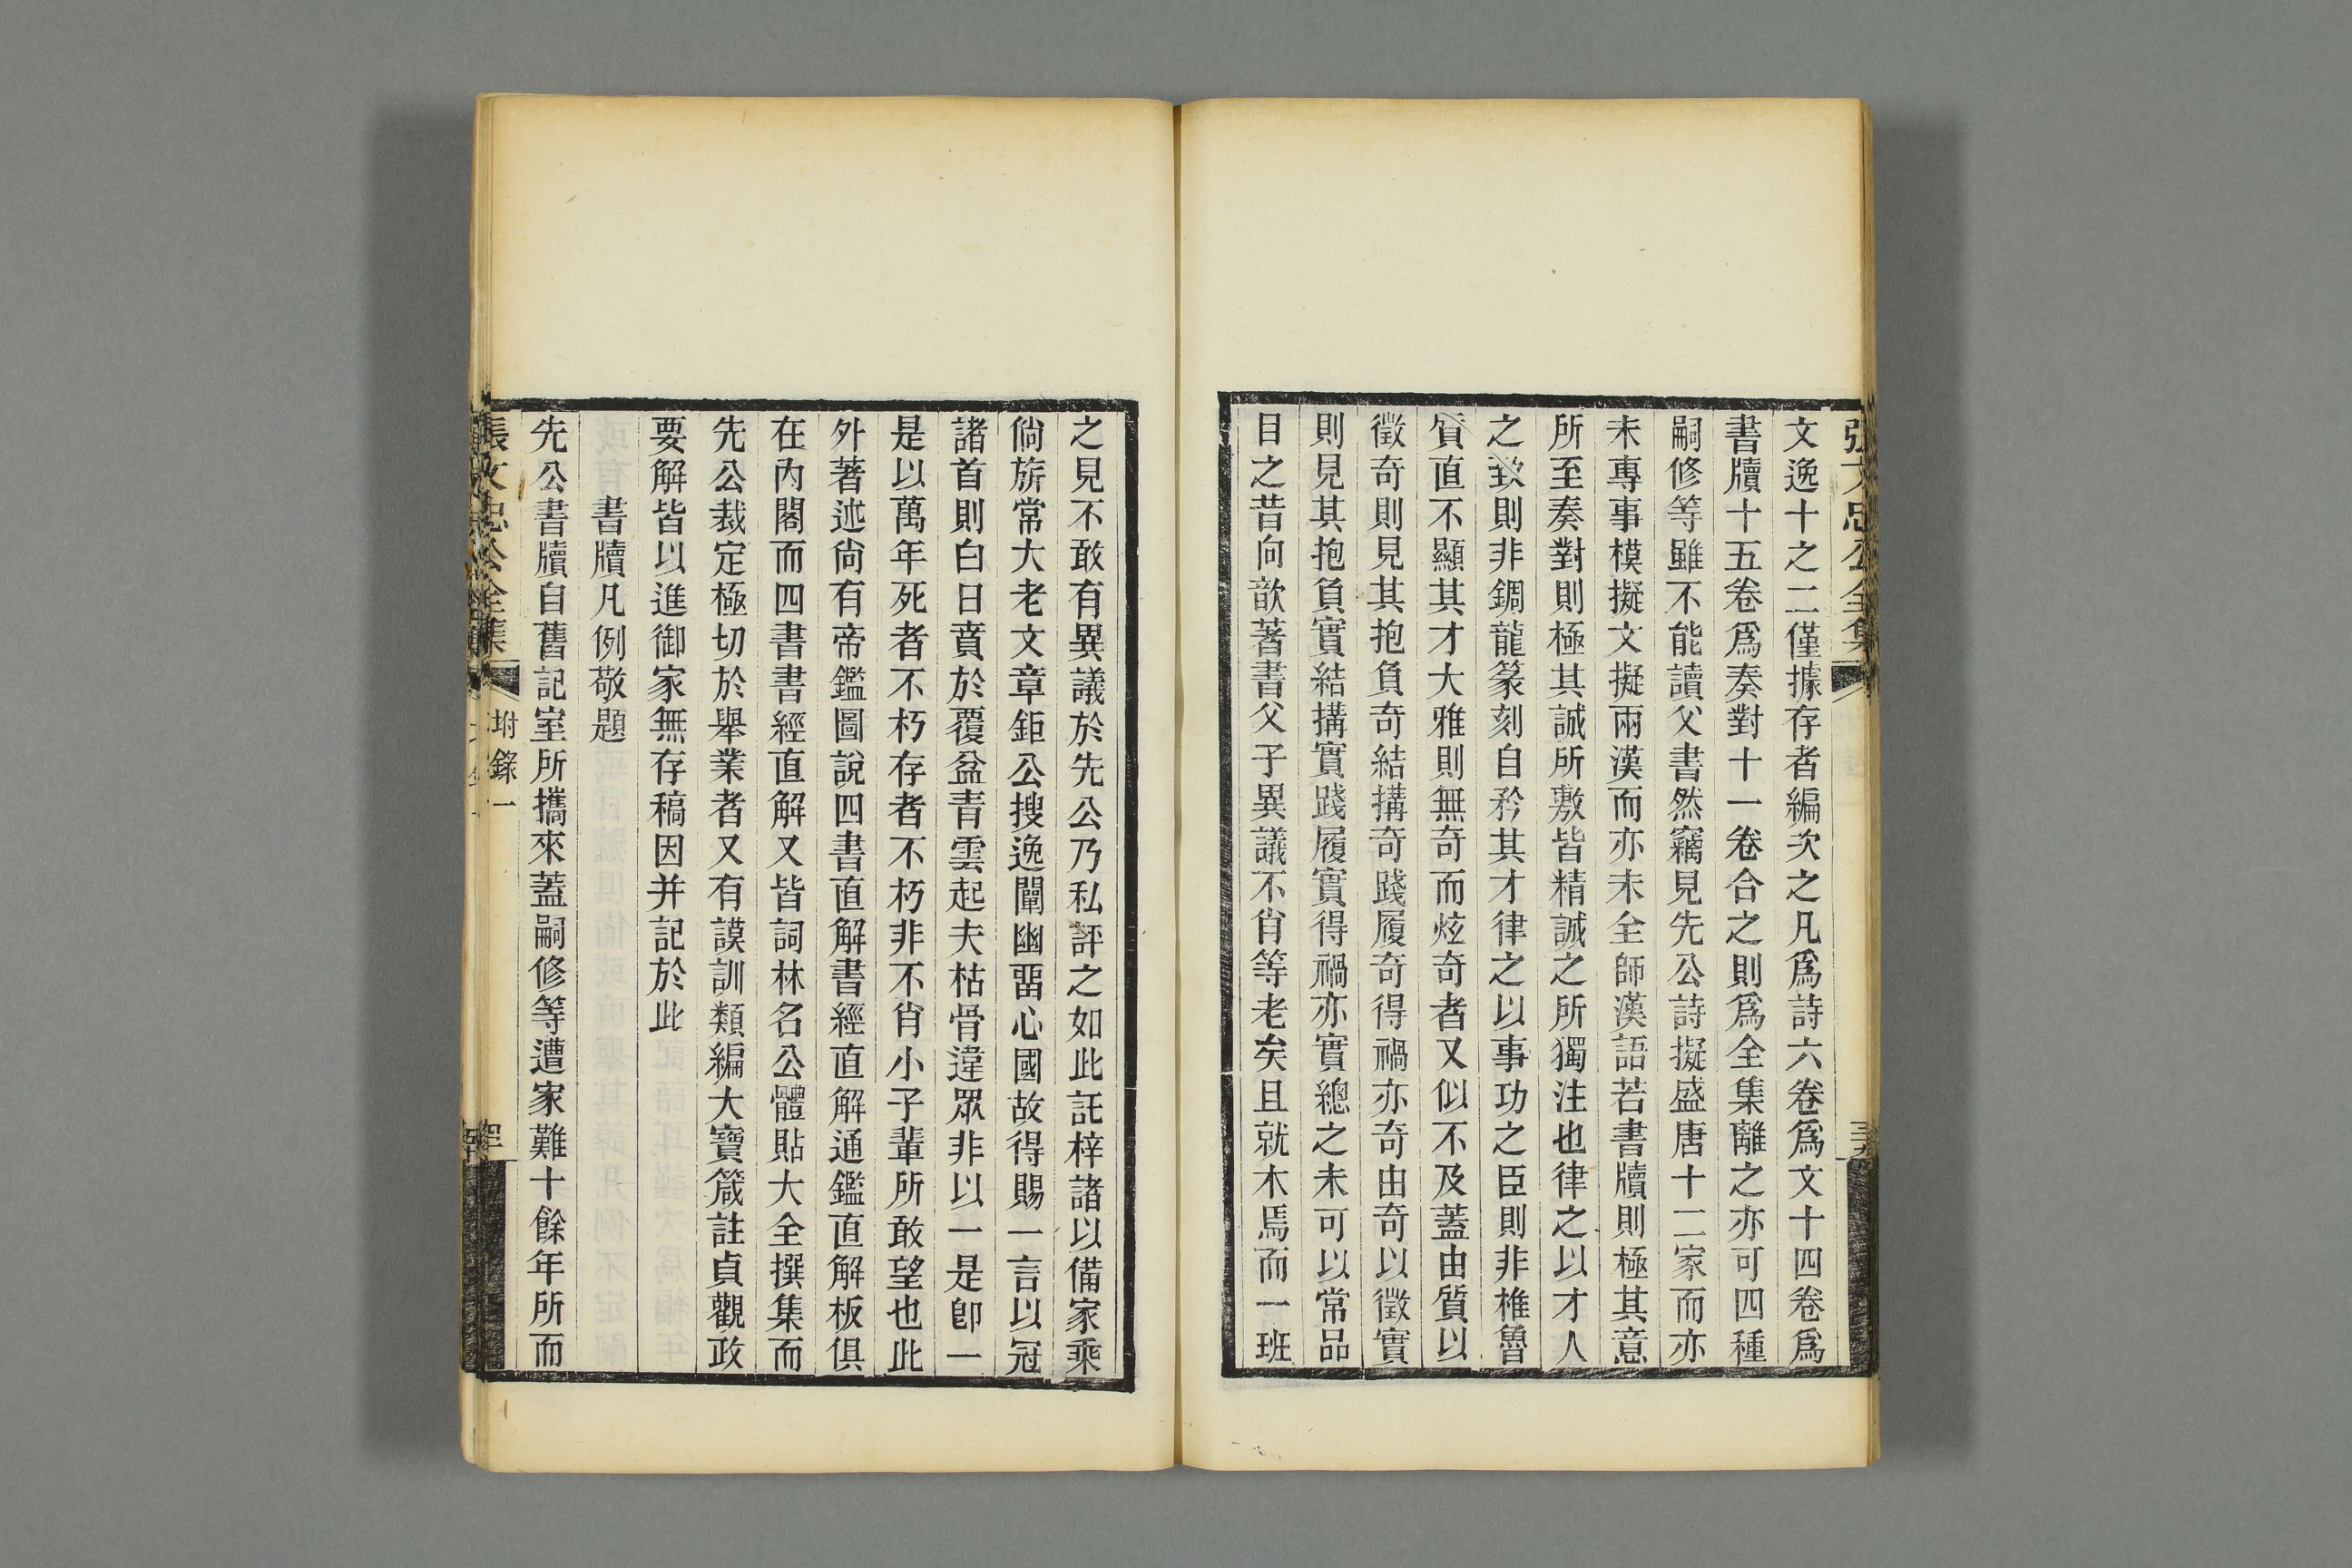 張文忠公全集
文逸十之二僅據存者編次之凡爲詩六卷爲文十四卷爲
書牘十五卷爲奏對十一卷合之則爲全集離之亦可四種
嗣修等雖不能讀父書然竊見先公詩擬盛唐十二家而亦
未專事模擬文擬兩漢而亦未全師漢語若書牘則極其意
所至奏對則極其誠所敷皆精誠之所獨注也律之以才人
之致則非鐦龍篆刻自矜其才律之以事功之臣則非椎魯
質直不顯其才大雅則無奇而炫奇者又似不及蓋由質以
徵奇則見其抱負奇結搆奇踐履奇得禍亦奇由奇以徵實
則見其抱負實結搆實踐履實得禍亦實總之未可以常品
目之昔向歆著書父子異議不肖等老矣且就木焉而一班
之見不敢有異議於先公乃私評之如此託梓諸以備家乘
倘旂常大老文章鉅公搜逸闡幽畱心國故得賜一言以冠
諸首則白日賁於覆盆青雲起夫枯骨違眾非以一是卽一
是以萬年死者不朽存者不朽非不肖小子輩所敢望也此
外著述尙有帝鑑圖說四書直解書經直解通鑑直解板俱
在內閣而四書書經直解又皆詞林名公體貼大全撰集而
先公裁定極切於舉業者又有謨訓類編大寶箴註貞觀政
要解皆以進御家無存稿因并記於此
書牘凡例敬題
先公書牘自舊記室所攜來蓋嗣修等遭家難十餘年所而
張文忠公全集
附錄一